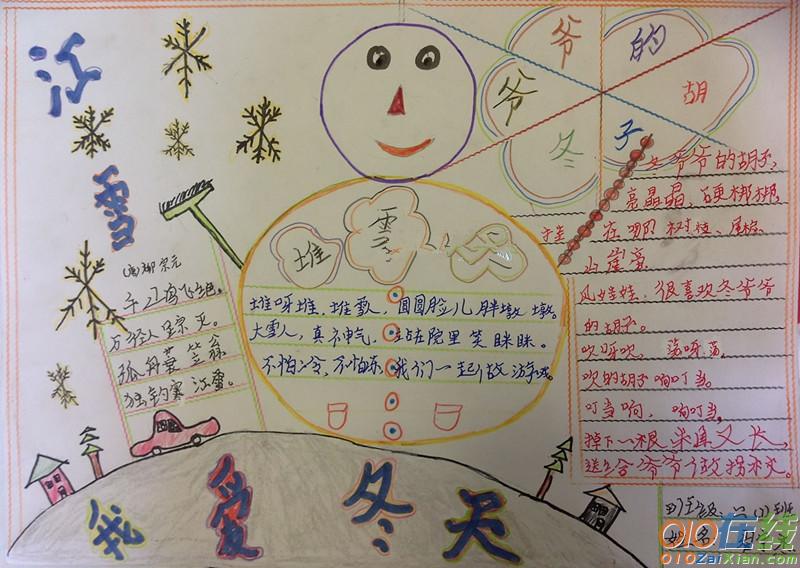 江
雪
(唐)柳宗元
千山鸟飞绝。
万径人踪灭。
孤舟蓑笠翁
独钓寒江雪。
堆雪人
堆呀堆,堆雪人,圆圆脸儿胖墩墩。
大雪人,真神气,站在院里笑眯眯。
不怕冷,不怕冻,我们一起做游戏。
冬爷爷的胡子
冬爷爷的胡子,
亮晶晶,硬梆梆
挂在哪 树枝、屋檐
山崖旁
风娃娃,很喜欢冬爷爷
的胡子。
吹呀吹,荡呀荡,
吹的胡子响叮当。
叮当响,响叮当,
掉下一根来直又长,
送给爷爷做拐杖。
我爱冬天
班级:
姓名
010在线
010ZaiXian.com